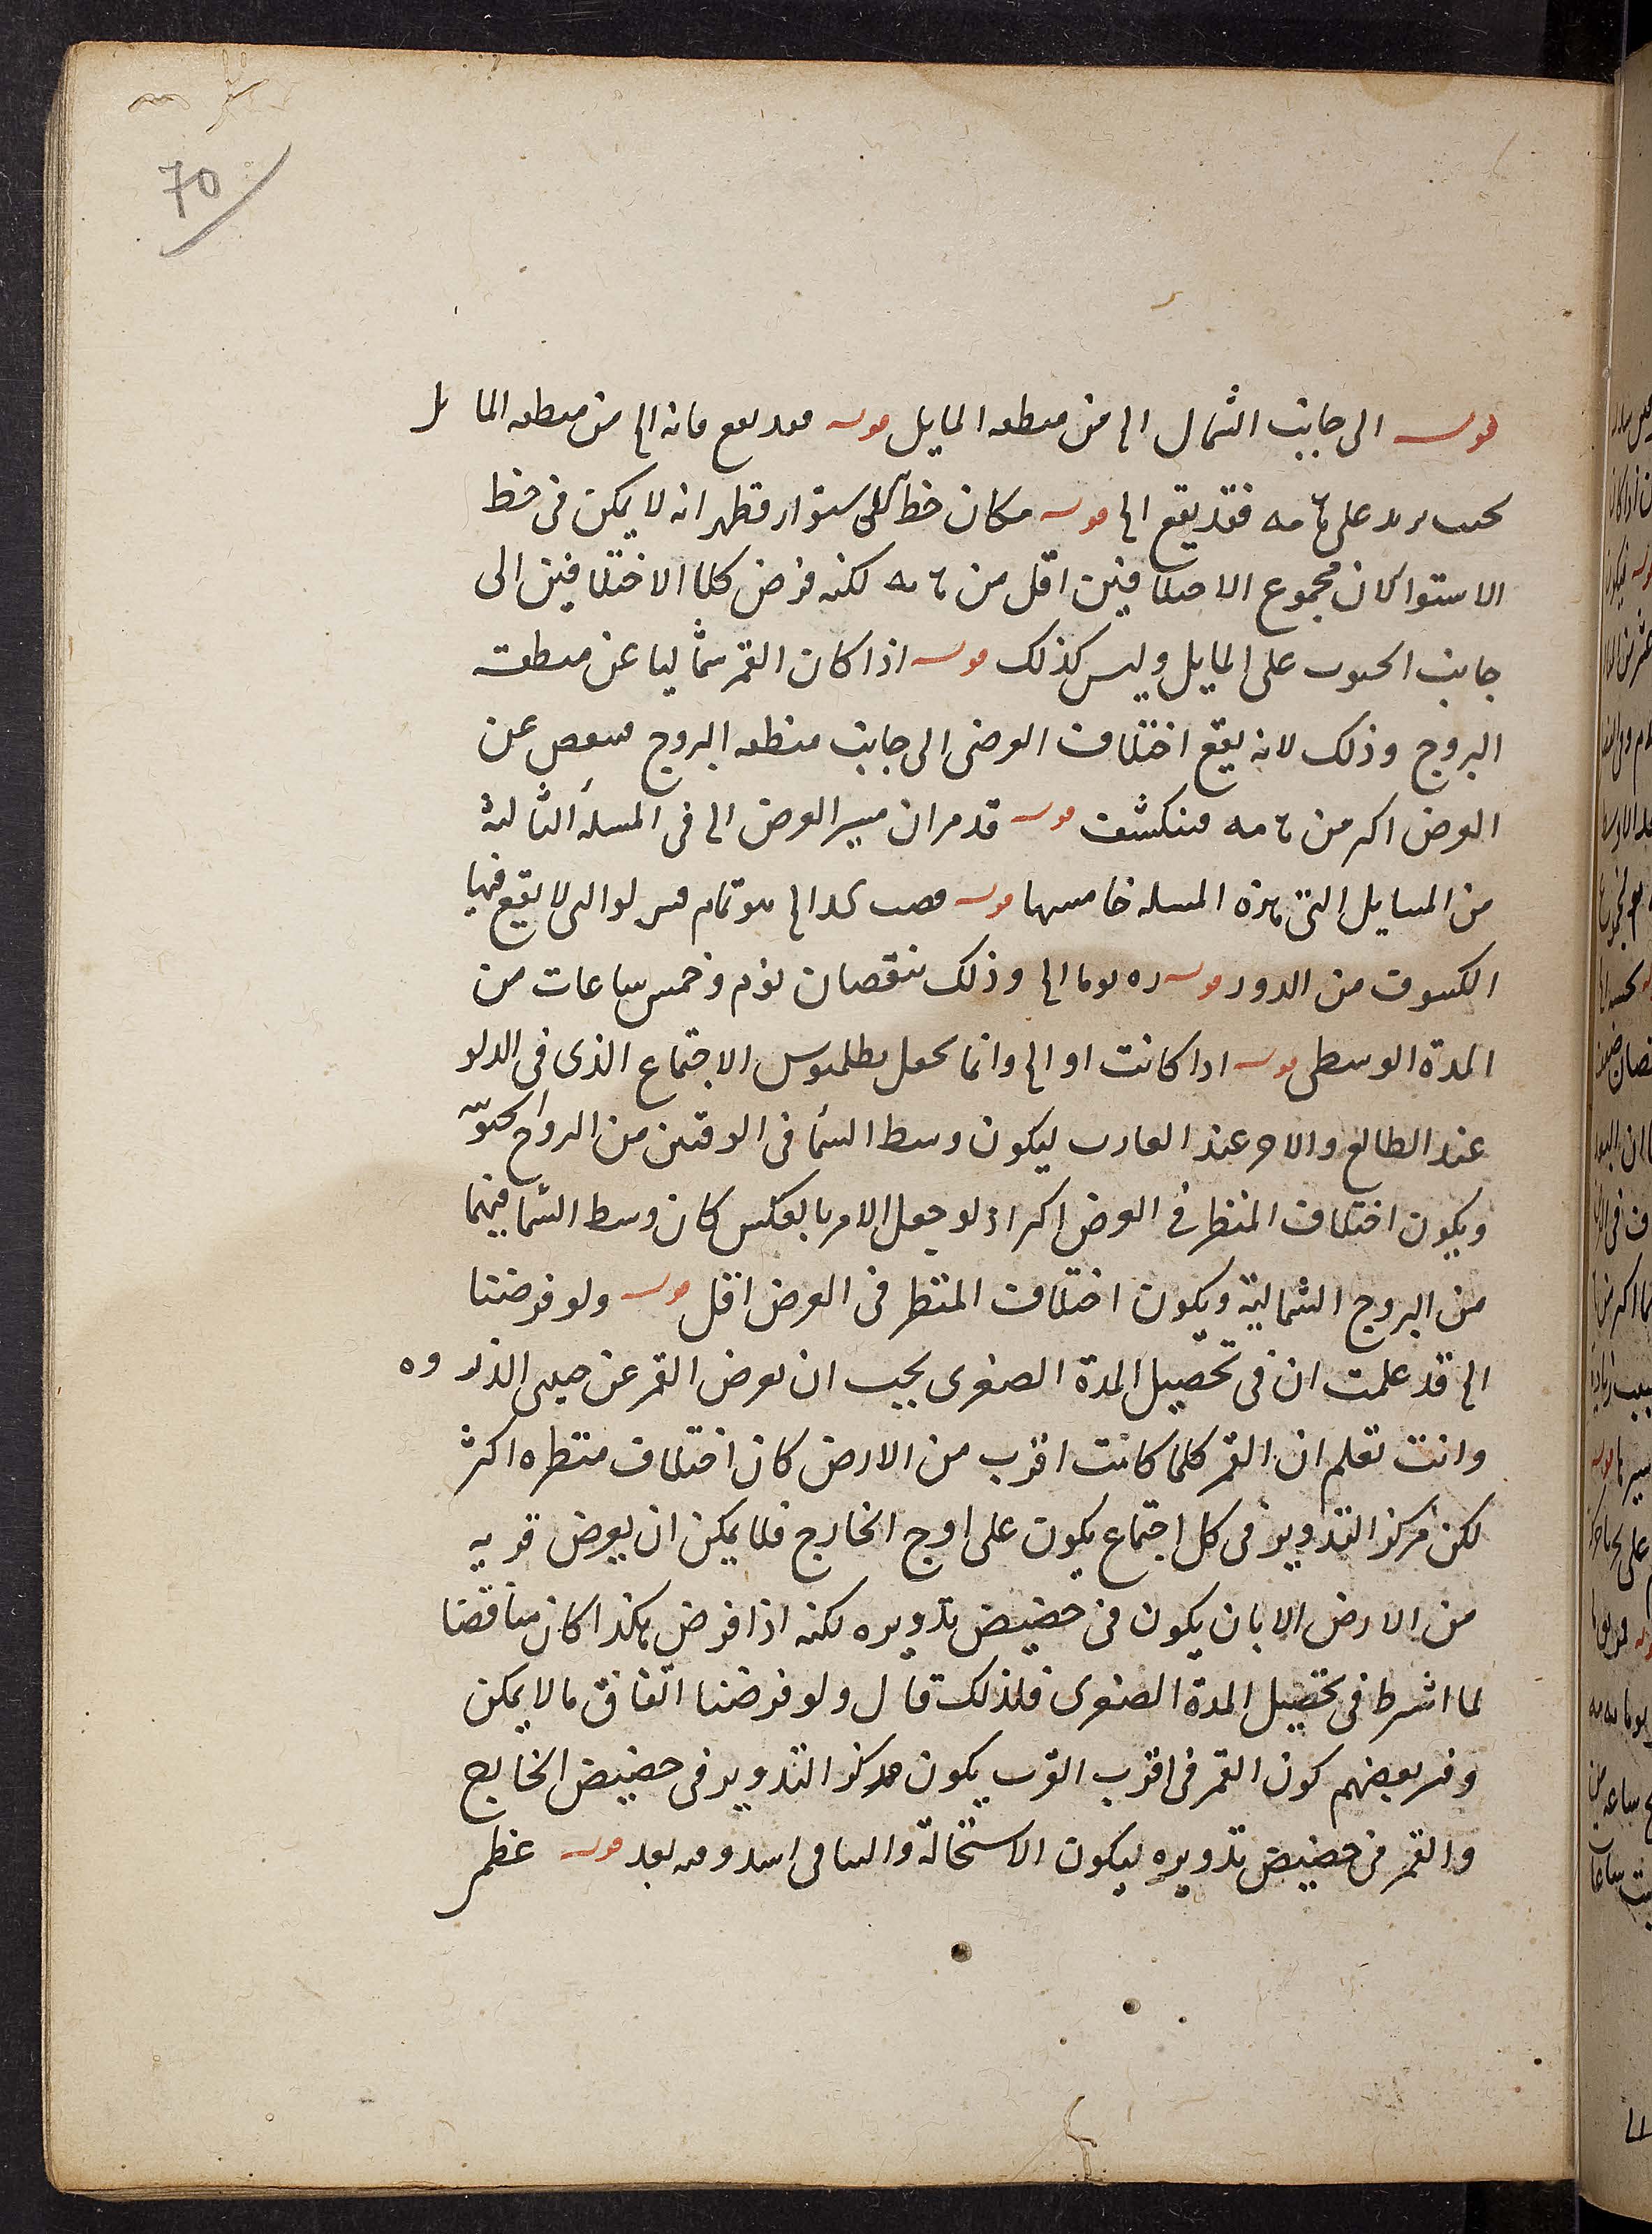 70
قوله الى جانب الشمال الى من منطقه المايل قوله فقد يقع فانه الى من منطقه المايل
بحيث يزيد على مه فقد يقع الى قوله مكان خط الاستوار فظهر انه لا يمكن فى خط
الاستوا لان مجموع الاختلافين اقل من مه لكنه فرض كلا الاختلافين الى
جانب الجنوب على المايل وليس كذلك قوله اذا كان القمر شماليا عن منطقة
البروج وذلك لانه يقع اختلاف العرض الى جانب منطقه البروج فينقص عن
العرض اكثر من مه فينكشف قوله قد مر ان مسير العرض الى فى المسلة الثالثة
من المسايل التى هذه المسله خامسها قوله الى هو تمام لا يقع فيها
الكسوف من الدور قوله يوما الى وذلك بنقصان يوم وخمس ساعات من
المدة الوسطى قوله اذا كانت او الى وانما جعل بطلميوس الاجتماع الذى فى الدلو
عند الطالع والاخر عند الغارب ليكون وسط السما فى الوقتين من البروج الجنوبية
ويكون اختلاف المنظر فى العرض اكثر اذ لو جعل الامر بالعكس كان وسط السما فيهما
من البروج الشمالية ويكون اختلاف المنظر فى العرض اقل قوله ولو فرضنا
الى قد علمت ان فى تحصيل المدة الصغرى يجب ان يعرض القمر عن جنبى الذروه
وانت تعلم ان القمر كلما كانت اقرب من الارض كان اختلاف منظره اكثر
لكن مركز التدوير فى كل اجتماع يكون على اوج الخارج فلا يمكن ان يعرض قربه
من الارض الا بان يكون فى حضيض تدويره لكنه اذا فرض هكذا كان مناقضا
لما اشرط فى تحصيل المدة الصغرى فلذلك قال ولو فرضنا اتفاق ما لا يمكن
وفسر بعضهم كون القمر فى اقرب القرب بكون مركز التدوير فى حضيض الخارج
والقمر فى حضيض تدويره ليكون الاستحالة والتنافى اشد وفيه بعد قوله عظم